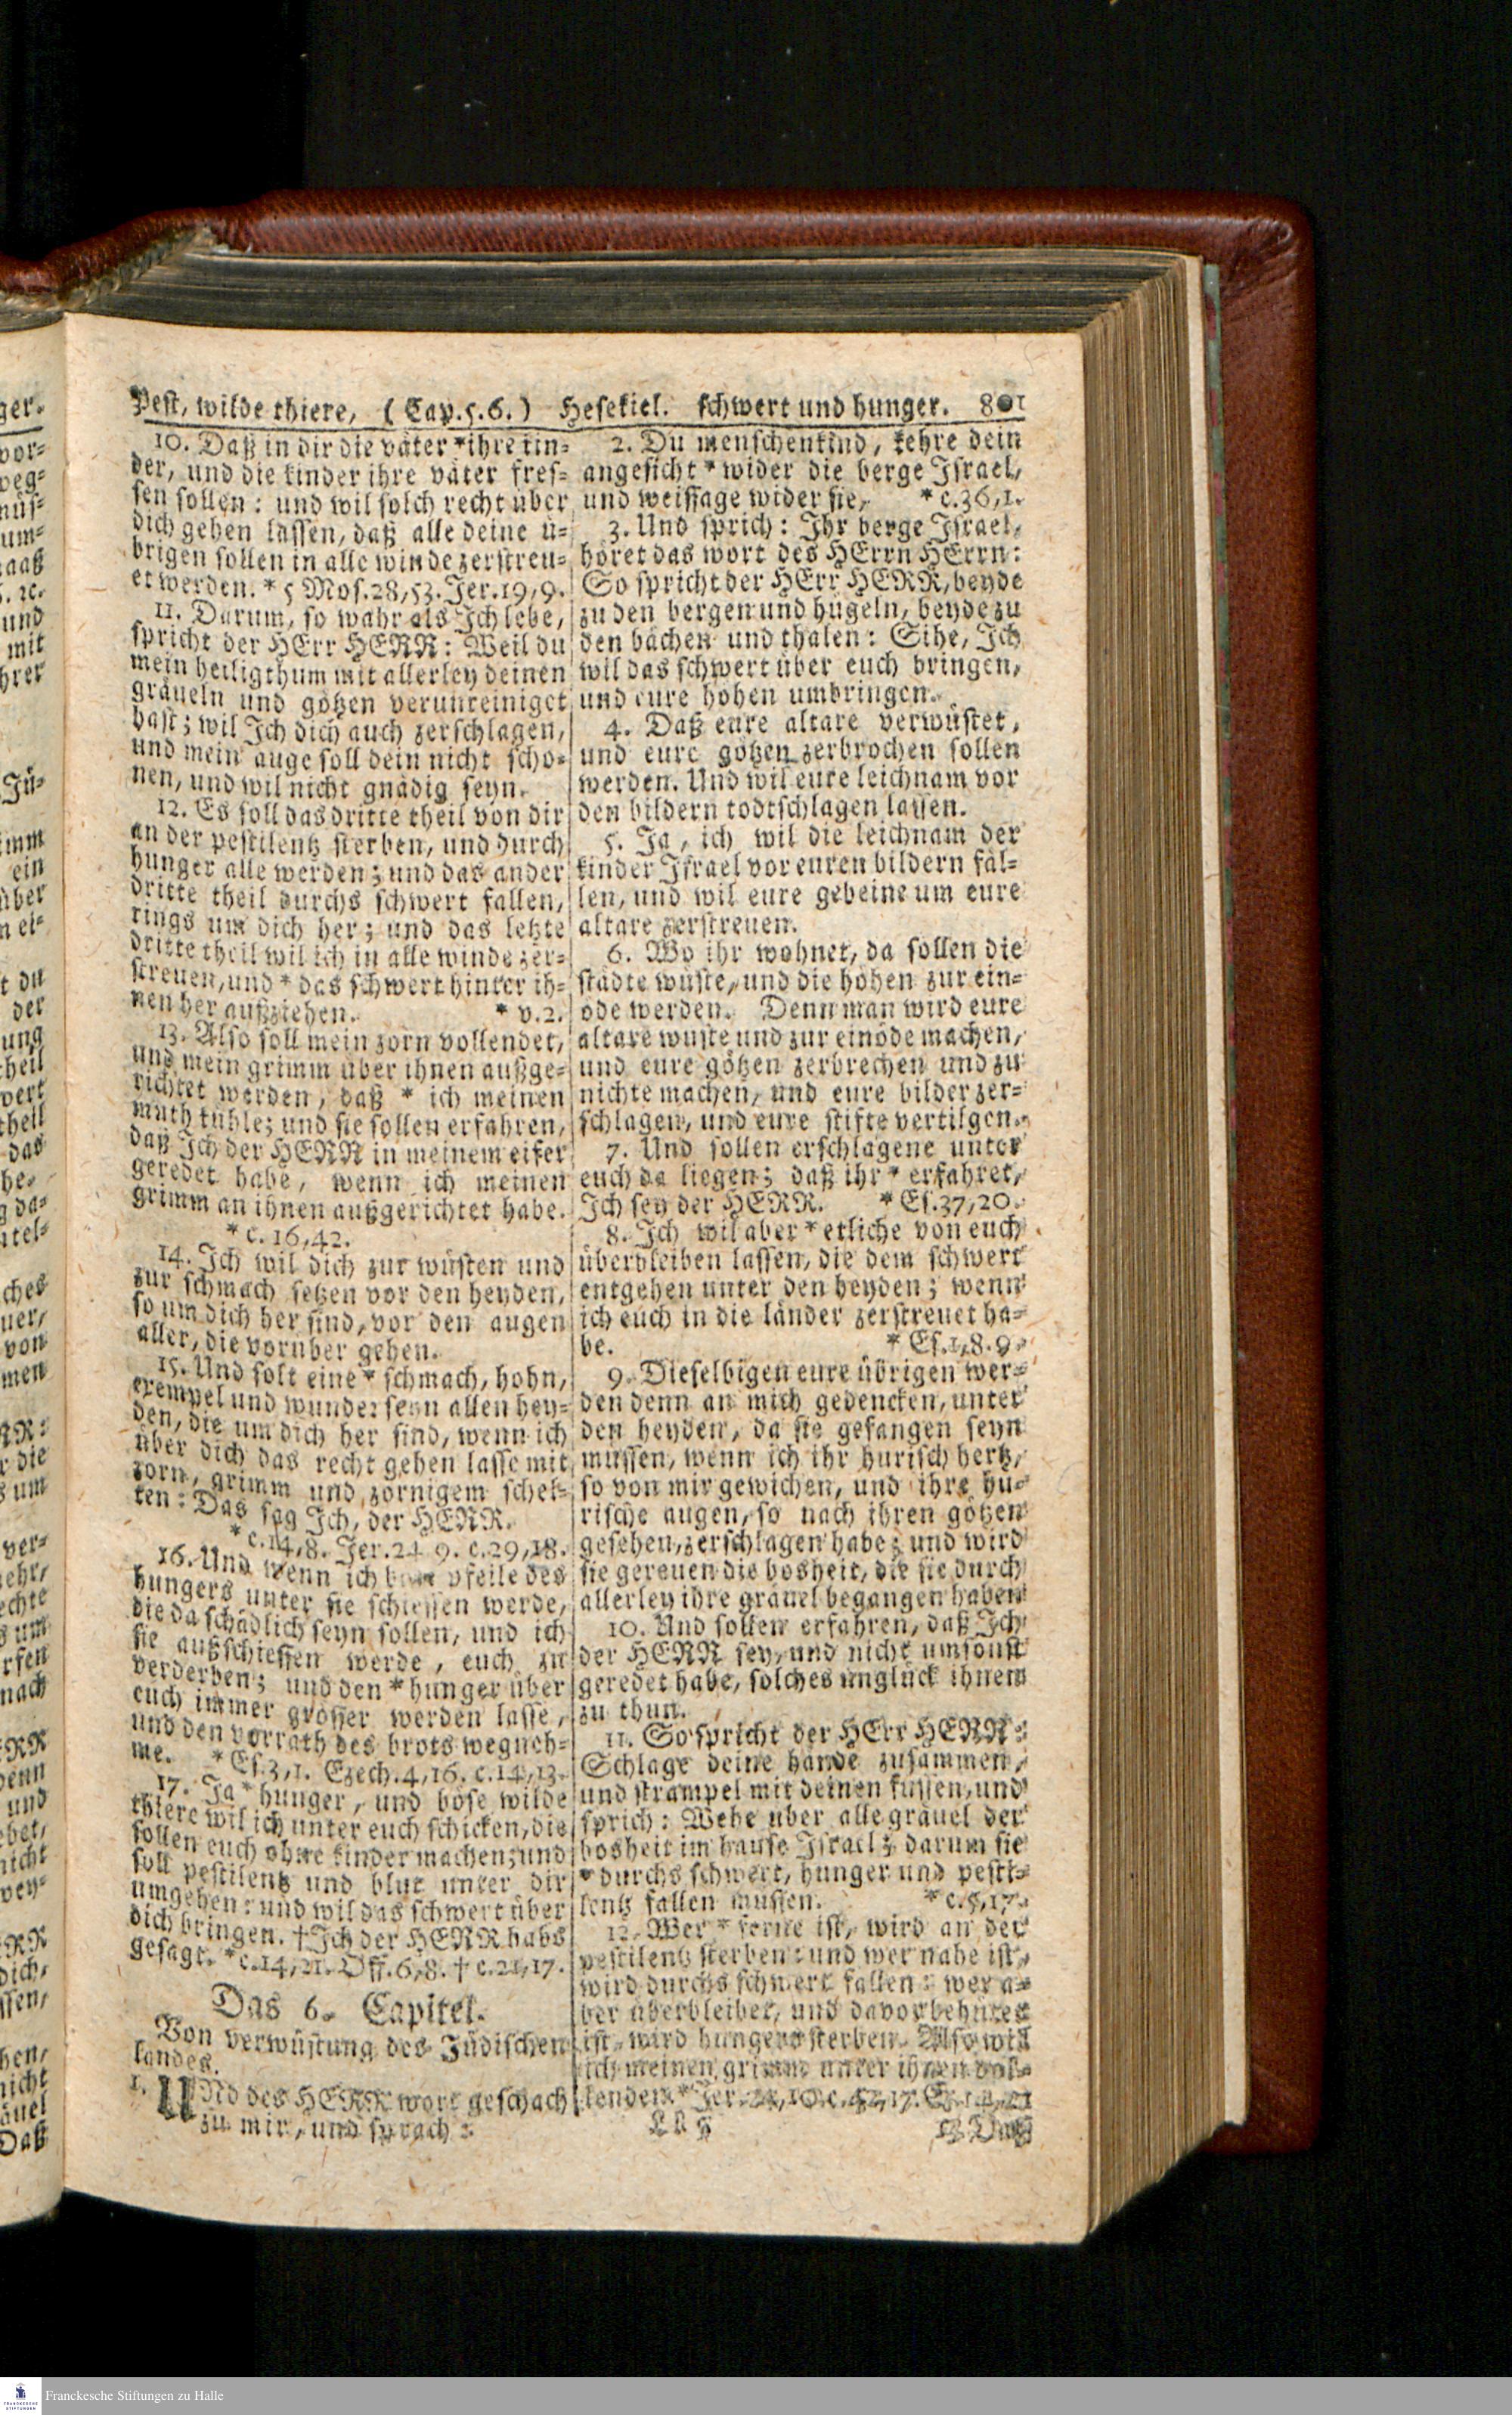 Pest, wilde thiere, (Cap.5.6.) Hesekiel. schwert und hunger. 801
10. Daß in dir die väter *ihre kin-
der, und die kinder ihre väter fres-
sen sollen: und wil solch recht über
dich gehen lassen, daß alle deine ü-
brigen sollen in alle winde zerstreu-
et werden. * 5 Mos.28,53. Jer.19,9.
11. Darum, so wahr als Ich lebe,
spricht der HErr HERR: Weil du
mein heiligthum mit allerley deinen
gräueln und götzen verunreiniget
hast; wil Ich dich auch zerschlagen,
und mein auge soll dein nicht scho-
nen, und wil nicht gnädig seyn.
12. Es soll das dritte theil von dir
an der pestilentz sterben, und durch
hunger alle werden; und das ander
dritte theil durchs schwert fallen,
rings um dich her; und das letzte
dritte theil wil ich in alle winde zer-
streuen, und * das schwert hinter ih-
nen her außziehen. * v.2.
13. Also soll mein zorn vollendet,
und mein grimm über ihnen außge-
richtet werden, daß * ich meinen
muth kühle; und sie sollen erfahren,
daß Ich der HERR in meinem eifer
geredet habe, wenn ich meinen
grimm an ihnen außgerichtet habe.
* c. 16,42.
14. Ich wil dich zur wüsten und
zur schmach setzen vor den heyden,
so um dich her sind, vor den augen
aller, die vorüber gehen.
15. Und solt eine * schmach, hohn,
exempel und wunder seyn allen hey-
den, die um dich her sind, wenn ich
über dich das recht gehen lasse mit
zorn, grimm und zornigem schel-
ten: Das sag Ich, der HERR.
* c.14,8. Jer.24 9. c.29,18.
16. Und wenn ich böse pfeile des
hungers unter sie schiessen werde,
die da schädlich seyn sollen, und ich
sie außschiessen werde, euch zu
verderben; und den * hunger über
euch immer grösser werden lasse,
und den vorrath des brots wegneh-
me. * Es.3,1. Ezech.4,16. c.14,13.
17. Ja * hunger, und böse wilde
thiere wil ich unter euch schicken, die
sollen euch ohne kinder machen; und
soll pestilentz und blut unter dir
umgehen: und wil das schwert über
dich bringen. † Ich der HERR habs
gesagt. * c.14,21. Off.6,8. † c.21,17.
Das 6. Capitel.
Von verwüstung des Jüdischen
landes.
1. UNd des HERRN wort geschach
zu mir, und sprach:
2. Du menschenkind, kehre dein
angesicht * wider die berge Israel,
und weissage wider sie, * c.36,1.
3. Und sprich: Ihr berge Israel,
höret das wort des HErrn HErrn:
So spricht der HErr HERR, beyde
zu den bergen und hügeln, beyde zu
den bächen und thalen: Sihe, Ich
wil das schwert über euch bringen,
und eure höhen umbringen.
4. Daß eure altare verwüstet,
und eure götzen zerbrochen sollen
werden. Und wil eure leichnam vor
den bildern todtschlagen lassen.
5. Ja, ich wil die leichnam der
kinder Israel vor euren bildern fäl-
len, und wil eure gebeine um eure
altare zerstreuen.
6. Wo ihr wohnet, da sollen die
städte wüste, und die höhen zur ein-
öde werden. Denn man wird eure
altare wüste und zur einöde machen,
und eure götzen zerbrechen und zu
nichte machen, und eure bilder zer-
schlagen, und eure stifte vertilgen.
7. Und sollen erschlagene unter
euch da liegen; daß ihr * erfahret,
Ich sey der HERR. * Es.37,20.
8. Ich wil aber * etliche von euch
überbleiben lassen, die dem schwert
entgehen unter den heyden; wenn
ich euch in die länder zerstreuet ha-
be. * Es.1,8.9.
9. Dieselbigen eure übrigen wer-
den denn an mich gedencken, unter
den heyden, da sie gefangen seyn
müssen, wenn ich ihr hurisch hertz,
so von mir gewichen, und ihre hu-
rische augen, so nach ihren götzen
gesehen, zerschlagen habe; und wird
sie gereuen die bosheit, die sie durch
allerley ihre gräuel begangen haben
10. Und sollen erfahren, daß Ich
der HERR sey, und nicht umsonst
geredet habe, solches unglück ihnen
zu thun.
11. So spricht der HErr HERR:
Schlage deine hände zusammen,
und strampel mit deinen füssen, und
sprich: Wehe über alle gräuel der
bosheit im hause Israel; darum sie
* durchs schwert, hunger und pesti-
lentz fallen müssen. * c.5,17.
12. Wer * ferne ist, wird an der
pestilentz sterben: und wer nahe ist,
wird durchs schwert fallen: wer a-
ber überbleibet, und davor behütet
ist, wird hungers sterben. Also wil
ich meinen grimm unter ihnen vol-
lenden. * Jer.
13. Daß
Franckesche Stiftungen zu Halle